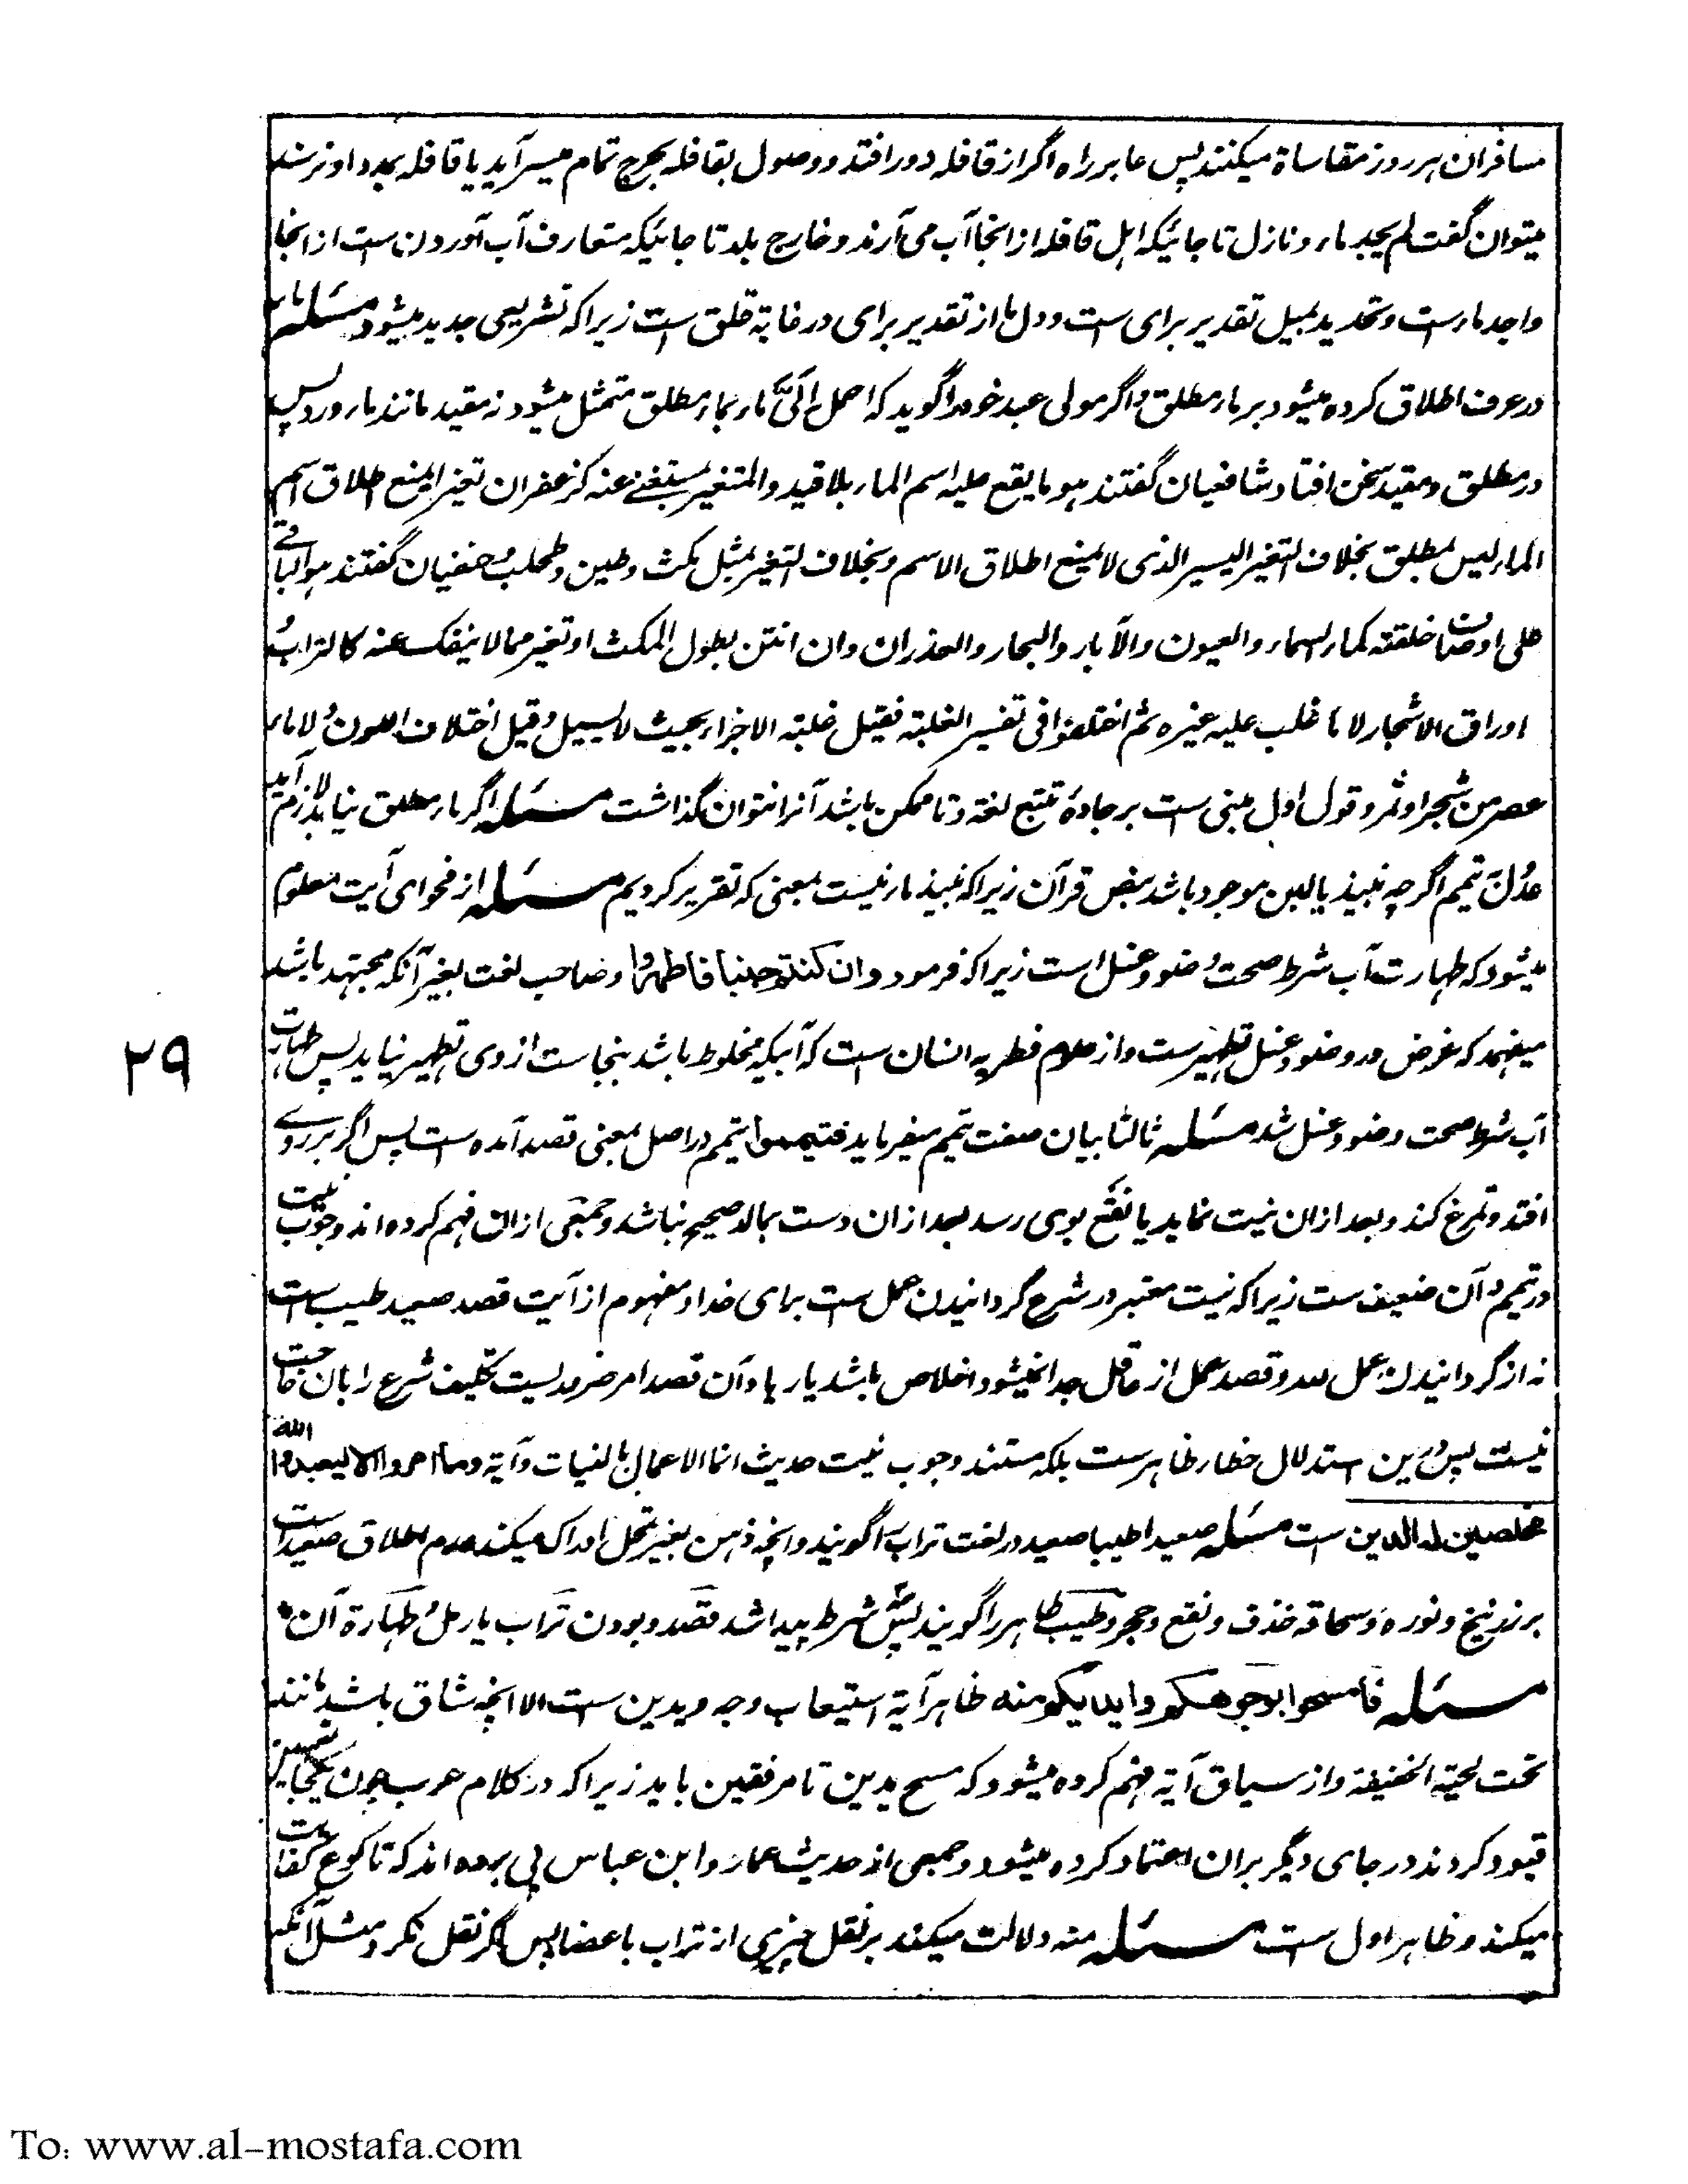 مسافران هر روز مقاساة میکنند پس عابر راه اگر از قافله دور افتد و وصول بقافله بحرج تمام میسر آید یا قافله بمدد او نرسد
میتوان گفت لم یجد ماء و نازل تا جائیکه اهل قافله از انجا آب می آرند و خارج بلد تا جائیکه متعارف آب آوردن ست از انجا
واجد ماء ست و تحدید بمیل تقدیر برای ست و دل ما از تقدیر برای در غایة قلق ست زیرا که تشریعی جدید میشود مسئله ماء
در عرف اطلاق کرده میشود بر ماء مطلق و اگر مولی عبد خود را گوید که احمل الیّ ماء بماء مطلق متمثل میشود نه مقید مانند ماء ورد پس
در مطلق و مقید سخن افتاد شافعیان گفتند هو ما یقع علیه اسم الماء بلا قید و المتغیر بمستغنی عنه کزعفران تغیرا یمنع اطلاق اسم
الماء لیس بمطلق بخلاف التغیر الیسیر الذی لا یمنع اطلاق الاسم و بخلاف التغیر بمثل مکث و طین و طحلب و حنفیان گفتند هو الباقی
علی اوصاف خلقته کماء السماء و العیون و الآبار و البحار و الغدران و ان انتن بطول المکث او تغیر مما لا ینفک عنه کالتراب و
اوراق الاشجار لا ما غلب علیه غیره ثم اختلفوا فی تفسیر الغلبة فقیل غلبة الاجزاء بحیث لا یسیل و قیل اختلاف اللون و لا ماء
عصر من شجر او ثمر و قول اول مبنی ست بر جادهٔ تتبع لغة و تا ممکن باشد آنرا نتوان گذاشت مسئله اگر ماء مطلق نیابد لازم آید
عدل تیمم اگرچه نبیذ یا لبن موجود باشد بنص قرآن زیرا که نبیذ ماء نیست بمعنی که تقریر کردیم مسئله از فحوای آیت معلوم
میشود که طهارت آب شرط صحت وضو و غسل است زیرا که فرمود و ان کنتم جنبا فاطهروا و صاحب لغت بغیر آنکه مجتهد باشد
میفهمد که غرض در وضو و غسل تطهیر ست و از علوم فطریه انسان ست که آبیکه مخلوط باشد بنجاست از وی تطهیر نیاید پس طهارت
آب شرط صحت وضو و غسل شد مسئله ثالثا بیان صفت تیمم میفرماید فتیمموا تیمم در اصل بمعنی قصد آمده ست پس اگر بر روی
افتد و تمرغ کند و بعد ازان نیت نماید یا نقع بوی رسد بعد ازان دست بمالد صحیح نباشد و جمعی ازان فهم کرده اند وجوب نیت
در تیمم و آن ضعیف ست زیرا که نیت معتبر در شرع گردانیدن عمل ست برای خدا و مفهوم از آیت قصد صعید طیب است
نه از گردانیدن عمل لله و قصد عمل از عاقل جدا نمیشود اخلاص باشد یا ریا و آن قصد امر ضرور یست تکلیف شرع را بآن حاجت
نیست پس درین استدلال خطاء ظاهر ست بلکه مستند وجوب نیت حدیث انما الاعمال بالنیات و آیة وما امروا الا لیعبدوا الله
مخلصین له الدین ست مسئله صعیدا طیبا صعید در لغت تراب را گویند و انچه ذهن بغیر تمحل ادراک میکند عدم اطلاق صعید است
بر زرنیخ و نوره و سحاقه خذف و نقع و حجر و طیب طاهر را گویند پس شرط پیدا شد قصد و بودن تراب یا رمل و طهارة آن
مسئله فامسحوا بوجوهکم وایدیکم منه ظاهر آیة استیعاب وجه و یدین ست الا انچه شاق باشد مانند
تحت لحیة الخفیفة و از سیاق آیة فهم کرده میشود که مسح یدین تا مرفقین باید زیرا که در کلام عرب چون یکجا تعیین
قیود کردند در جای دیگر بران اعتماد کرده میشود و جمعی از حدیث عمار و ابن عباس پی برده اند که تا کوع کفایت
میکند و ظاهر اول ست مسئله منه دلالت میکند بر نقل چیزی از تراب باعضا پس اگر نقل نکرد مثلا آنکه
۲۹
To: www.al-mostafa.com